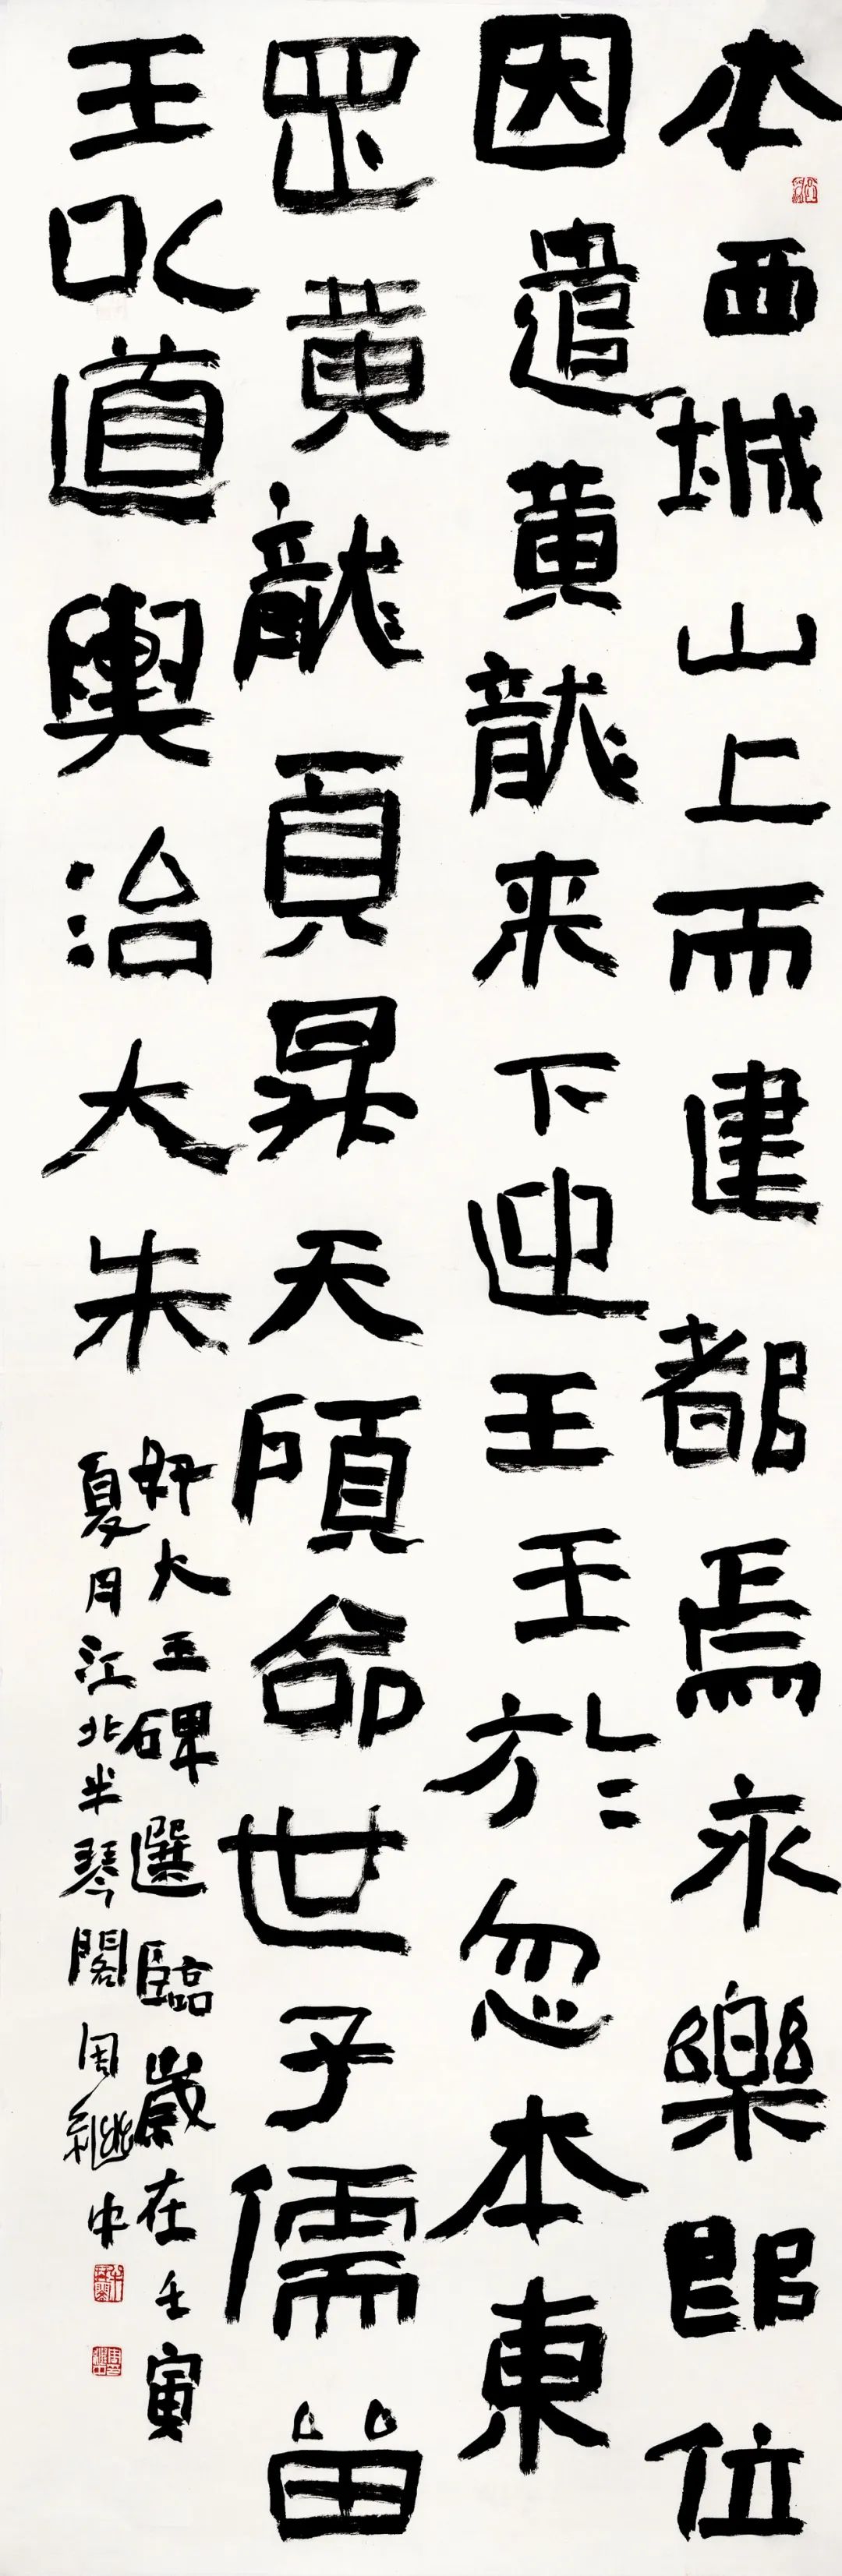 本西城山上而建都焉永樂即位
因遣黃龍来下迎王王於忽本東
罡黃龍頁昇天頋命世子儒留
王以道輿治大朱
好大王碑選臨歲在壬寅
夏月江北半琴閣周繼中